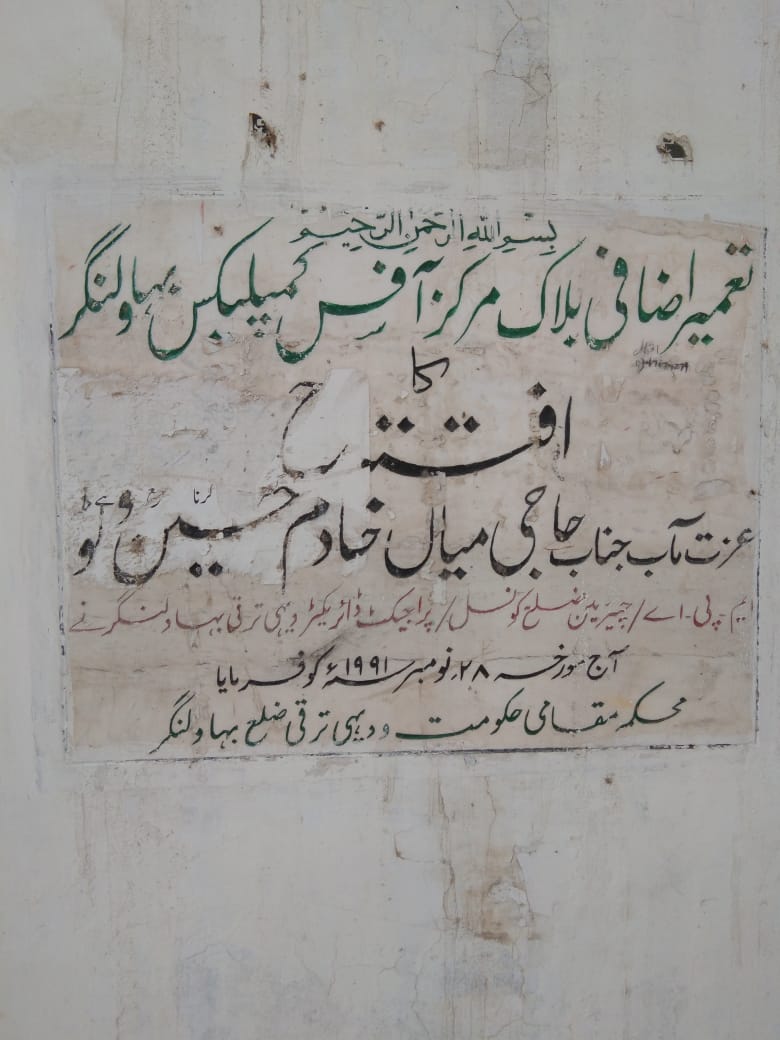 بِسْمِ اللّٰهِ الرَّحْمٰنِ الرَّحِيْمِ
تعمیر اضافی بلاک مرکز آفس کمپلیکس بہاولنگر
کا
افتتاح
عزت مآب جناب حاجی میاں خادم حسین وٹو
ایم۔پی۔اے/چیرمین ضلع کونسل/پراجیکٹ ڈائریکٹر دیہی ترقی بہاولنگر نے
آج مورخہ ۲۸ نومبر ۱۹۹۱ء کو فرمایا
محکمہ مقامی حکومت و دیہی ترقی ضلع بہاولنگر